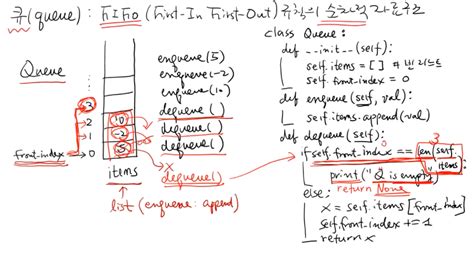 큐(queue) : FIFO (First-In First-Out) 규칙의 순차적 자료구조
Queue
enqueue(5)
enqueue(-2)
enqueue(10)
dequeue()
dequeue()
dequeue()
dequeue()
3
2
1
0
front_index
10
-2
5
items
list (enqueue: append)
class Queue :
def __init__(self):
self.items = [] # 빈 리스트
self.front_index = 0
def enqueue(self, val):
self.items.append(val)
def dequeue(self):
0
3
if self.front_index == len(self.
items):
print("Q is empty")
return None
else:
x = self.items[front_index]
self.front_index += 1
return x